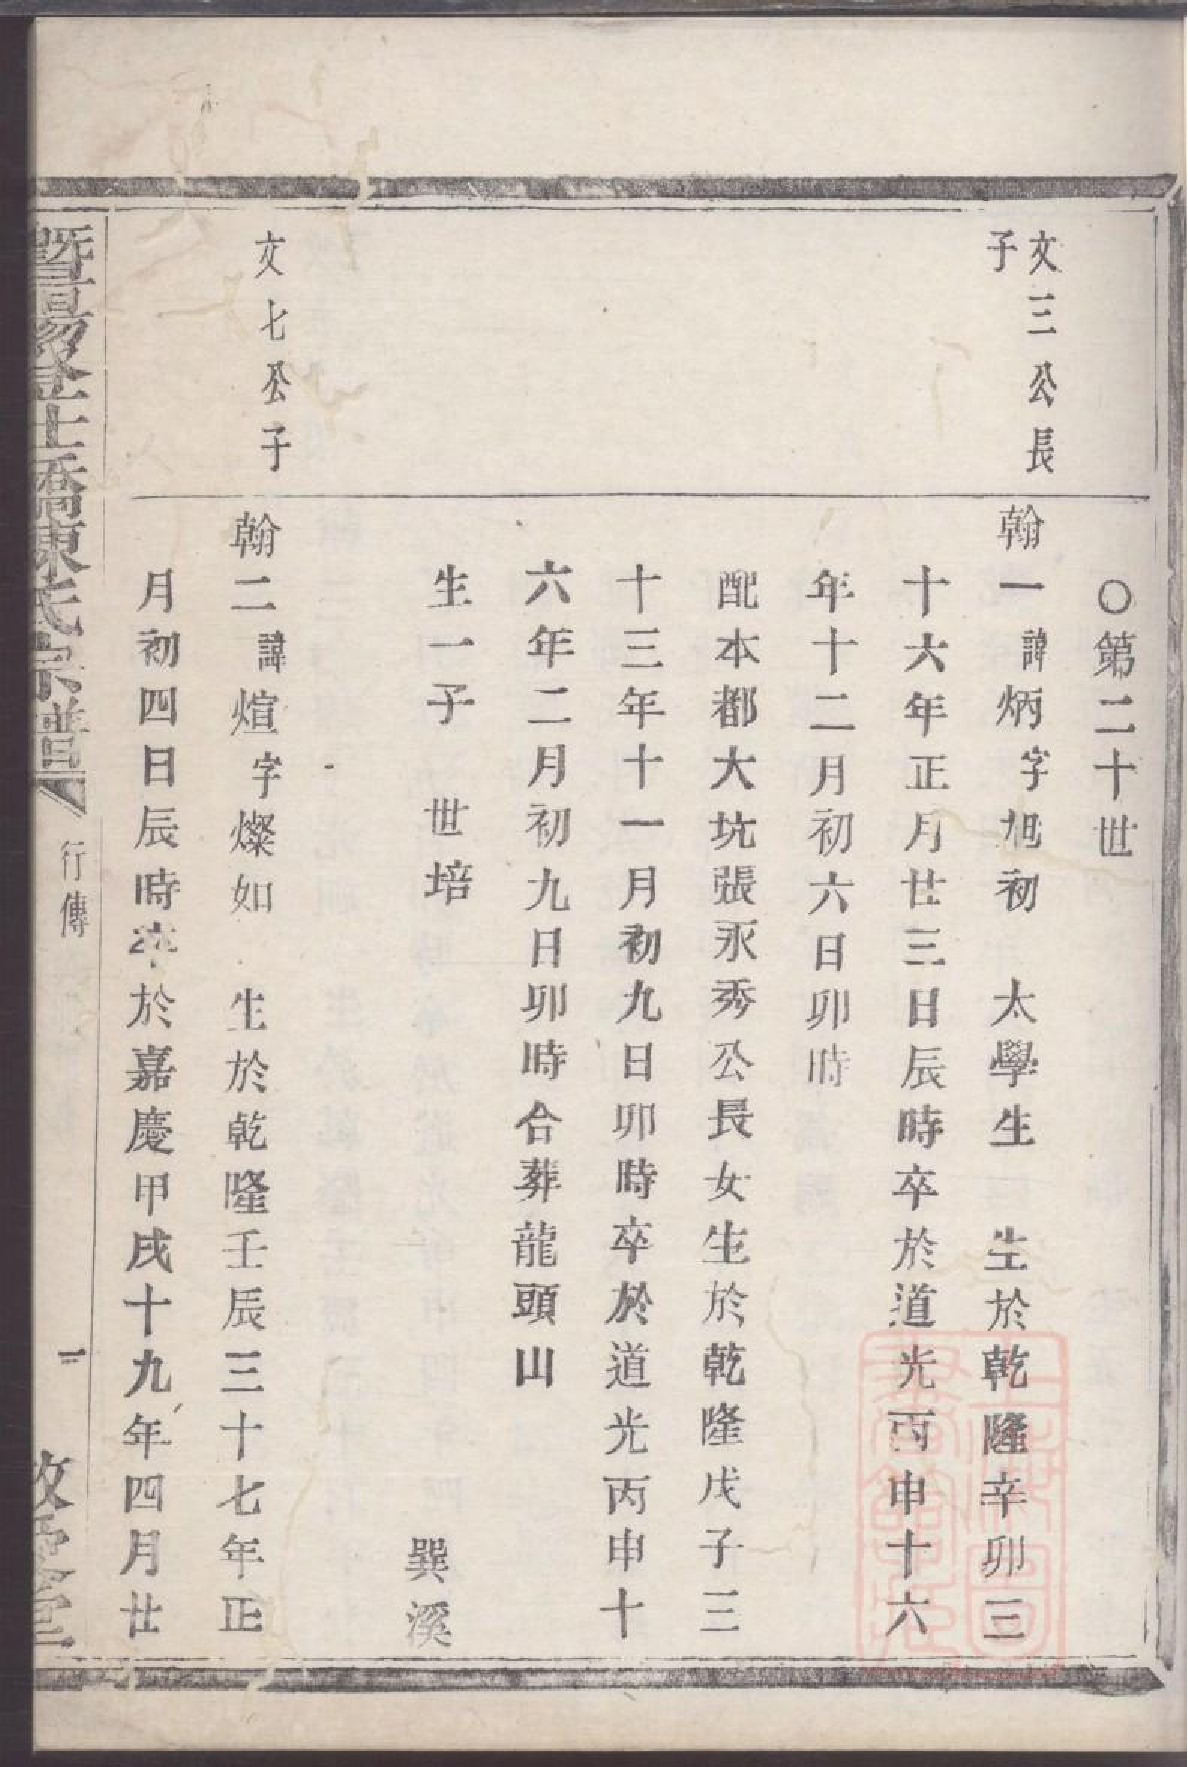 〇第二十世
文三公長
子
翰一諱炳字旭初　太學生　生於乾隆辛卯三
十六年正月廿三日辰時卒於道光丙申十六
年十二月初六日卯時
配本都大坑張永秀公長女生於乾隆戊子三
十三年十一月初九日卯時卒於道光丙申十
六年二月初九日卯時合葬龍頭山
生一子　世培　巽溪
文七公子
翰二諱煊字燦如　生於乾隆壬辰三十七年正
月初四日辰時卒於嘉慶甲戌十九年四月廿
暨陽金士橋陳氏宗譜　行傳　一　敘堂
上海圖書館藏